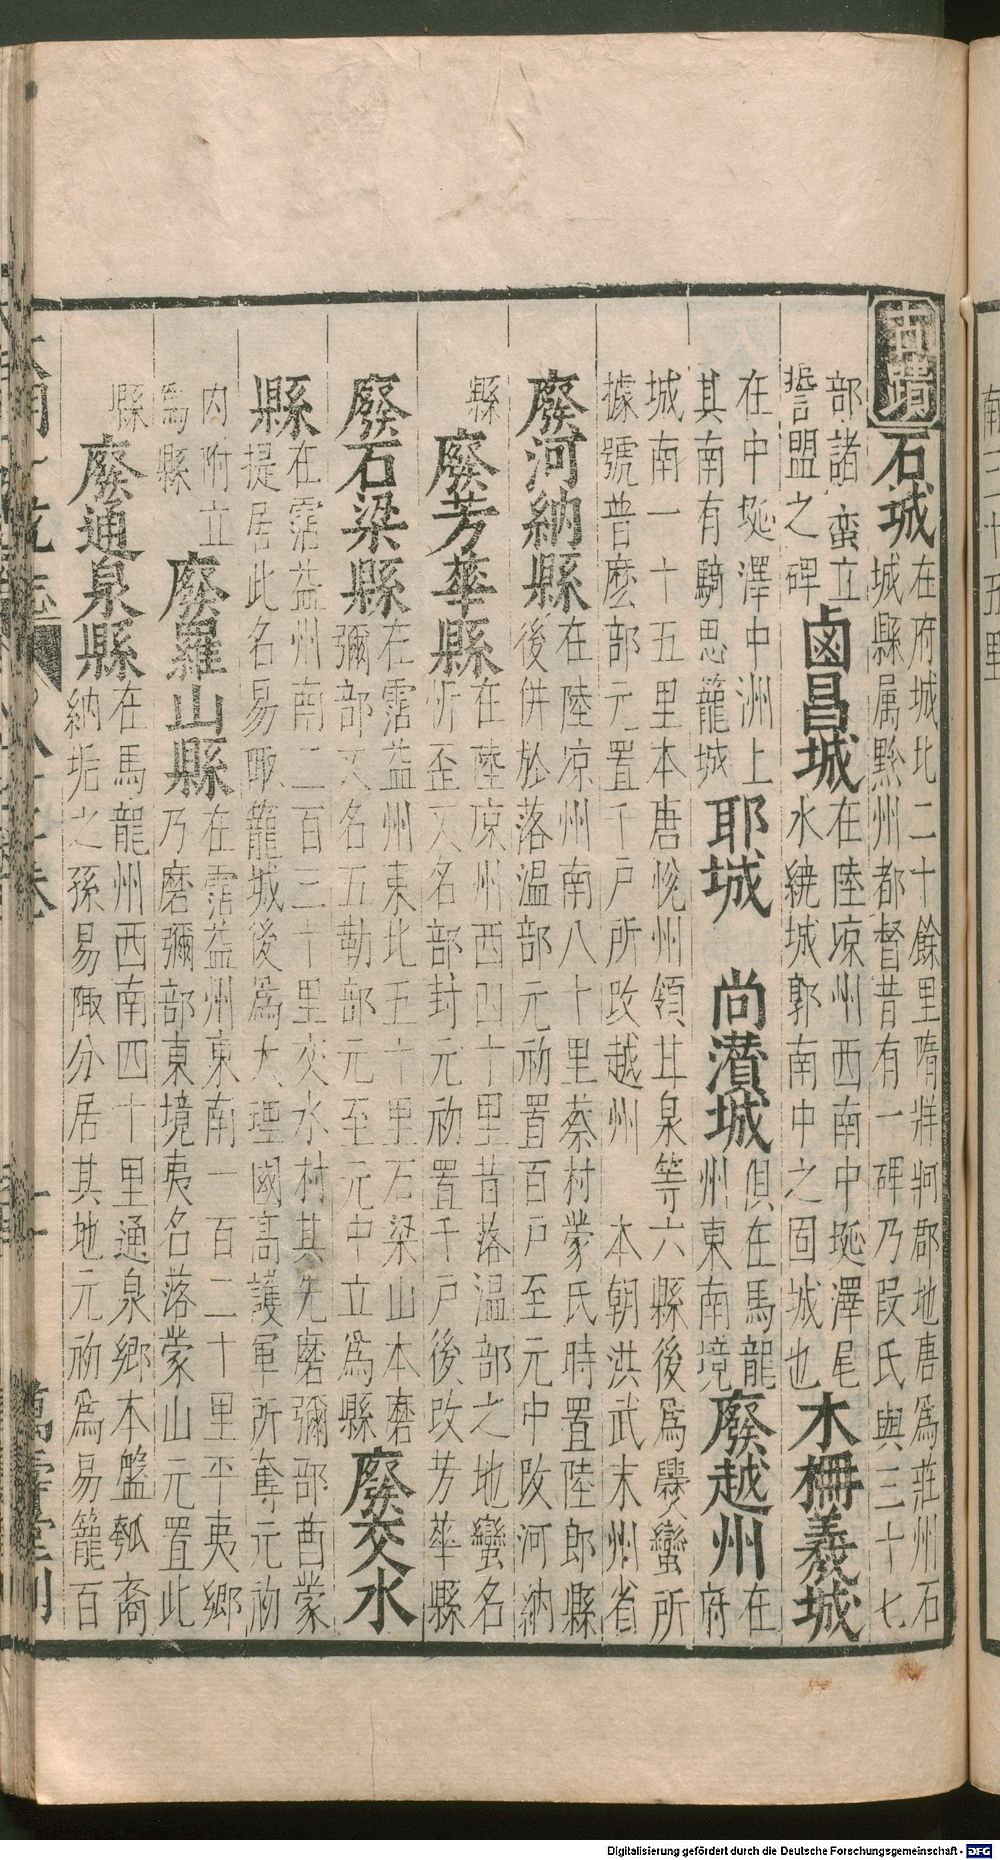 古蹟
石城
在府城北二十餘里隋牂牁郡地唐為莊州石
城縣属黔州都督昔有一碑乃段氏與三十七
部諸蠻立
誓盟之碑
鹵昌城
在陸凉州西南中埏澤尾
水繞城郭南中之固城也
木柵義城
在中埏澤中洲上
其南有騎思籠城
耶城 尚濽城
俱在馬龍
州東南境
廢越州
在
府
城南一十五里本唐悅州領甘泉等六縣後為爨蠻所
據號普麽部元置千戶所改越州 本朝洪武末州省
廢河納縣
在陸凉州南八十里蔡村蒙氏時置陸郎縣
後併於落温部元初置百戶至元中改河納
縣
廢芳華縣
在陸凉州西四十里昔落温部之地蠻名
忻歪又名部封元初置千戶後改芳華縣
廢石梁縣
在霑益州東北五十里石梁山本磨
彌部又名五勒部元至元中立為縣
廢交水
縣
在霑益州南二百三十里交水村其先磨彌部酋蒙
提居此名易陬籠城後為大理國高護軍所奪元初
内附立
為縣
廢羅山縣
在霑益州東南一百二十里平夷鄉
乃磨彌部東境夷名落蒙山元置此
縣
廢通泉縣
在馬龍州西南四十里通泉鄉本盤瓠裔
納垢之孫易陬分居其地元初為易籠百
萬壽堂刊
Digitalisierung gefördert durch die Deutsche Forschungsgemeinschaft - DFG